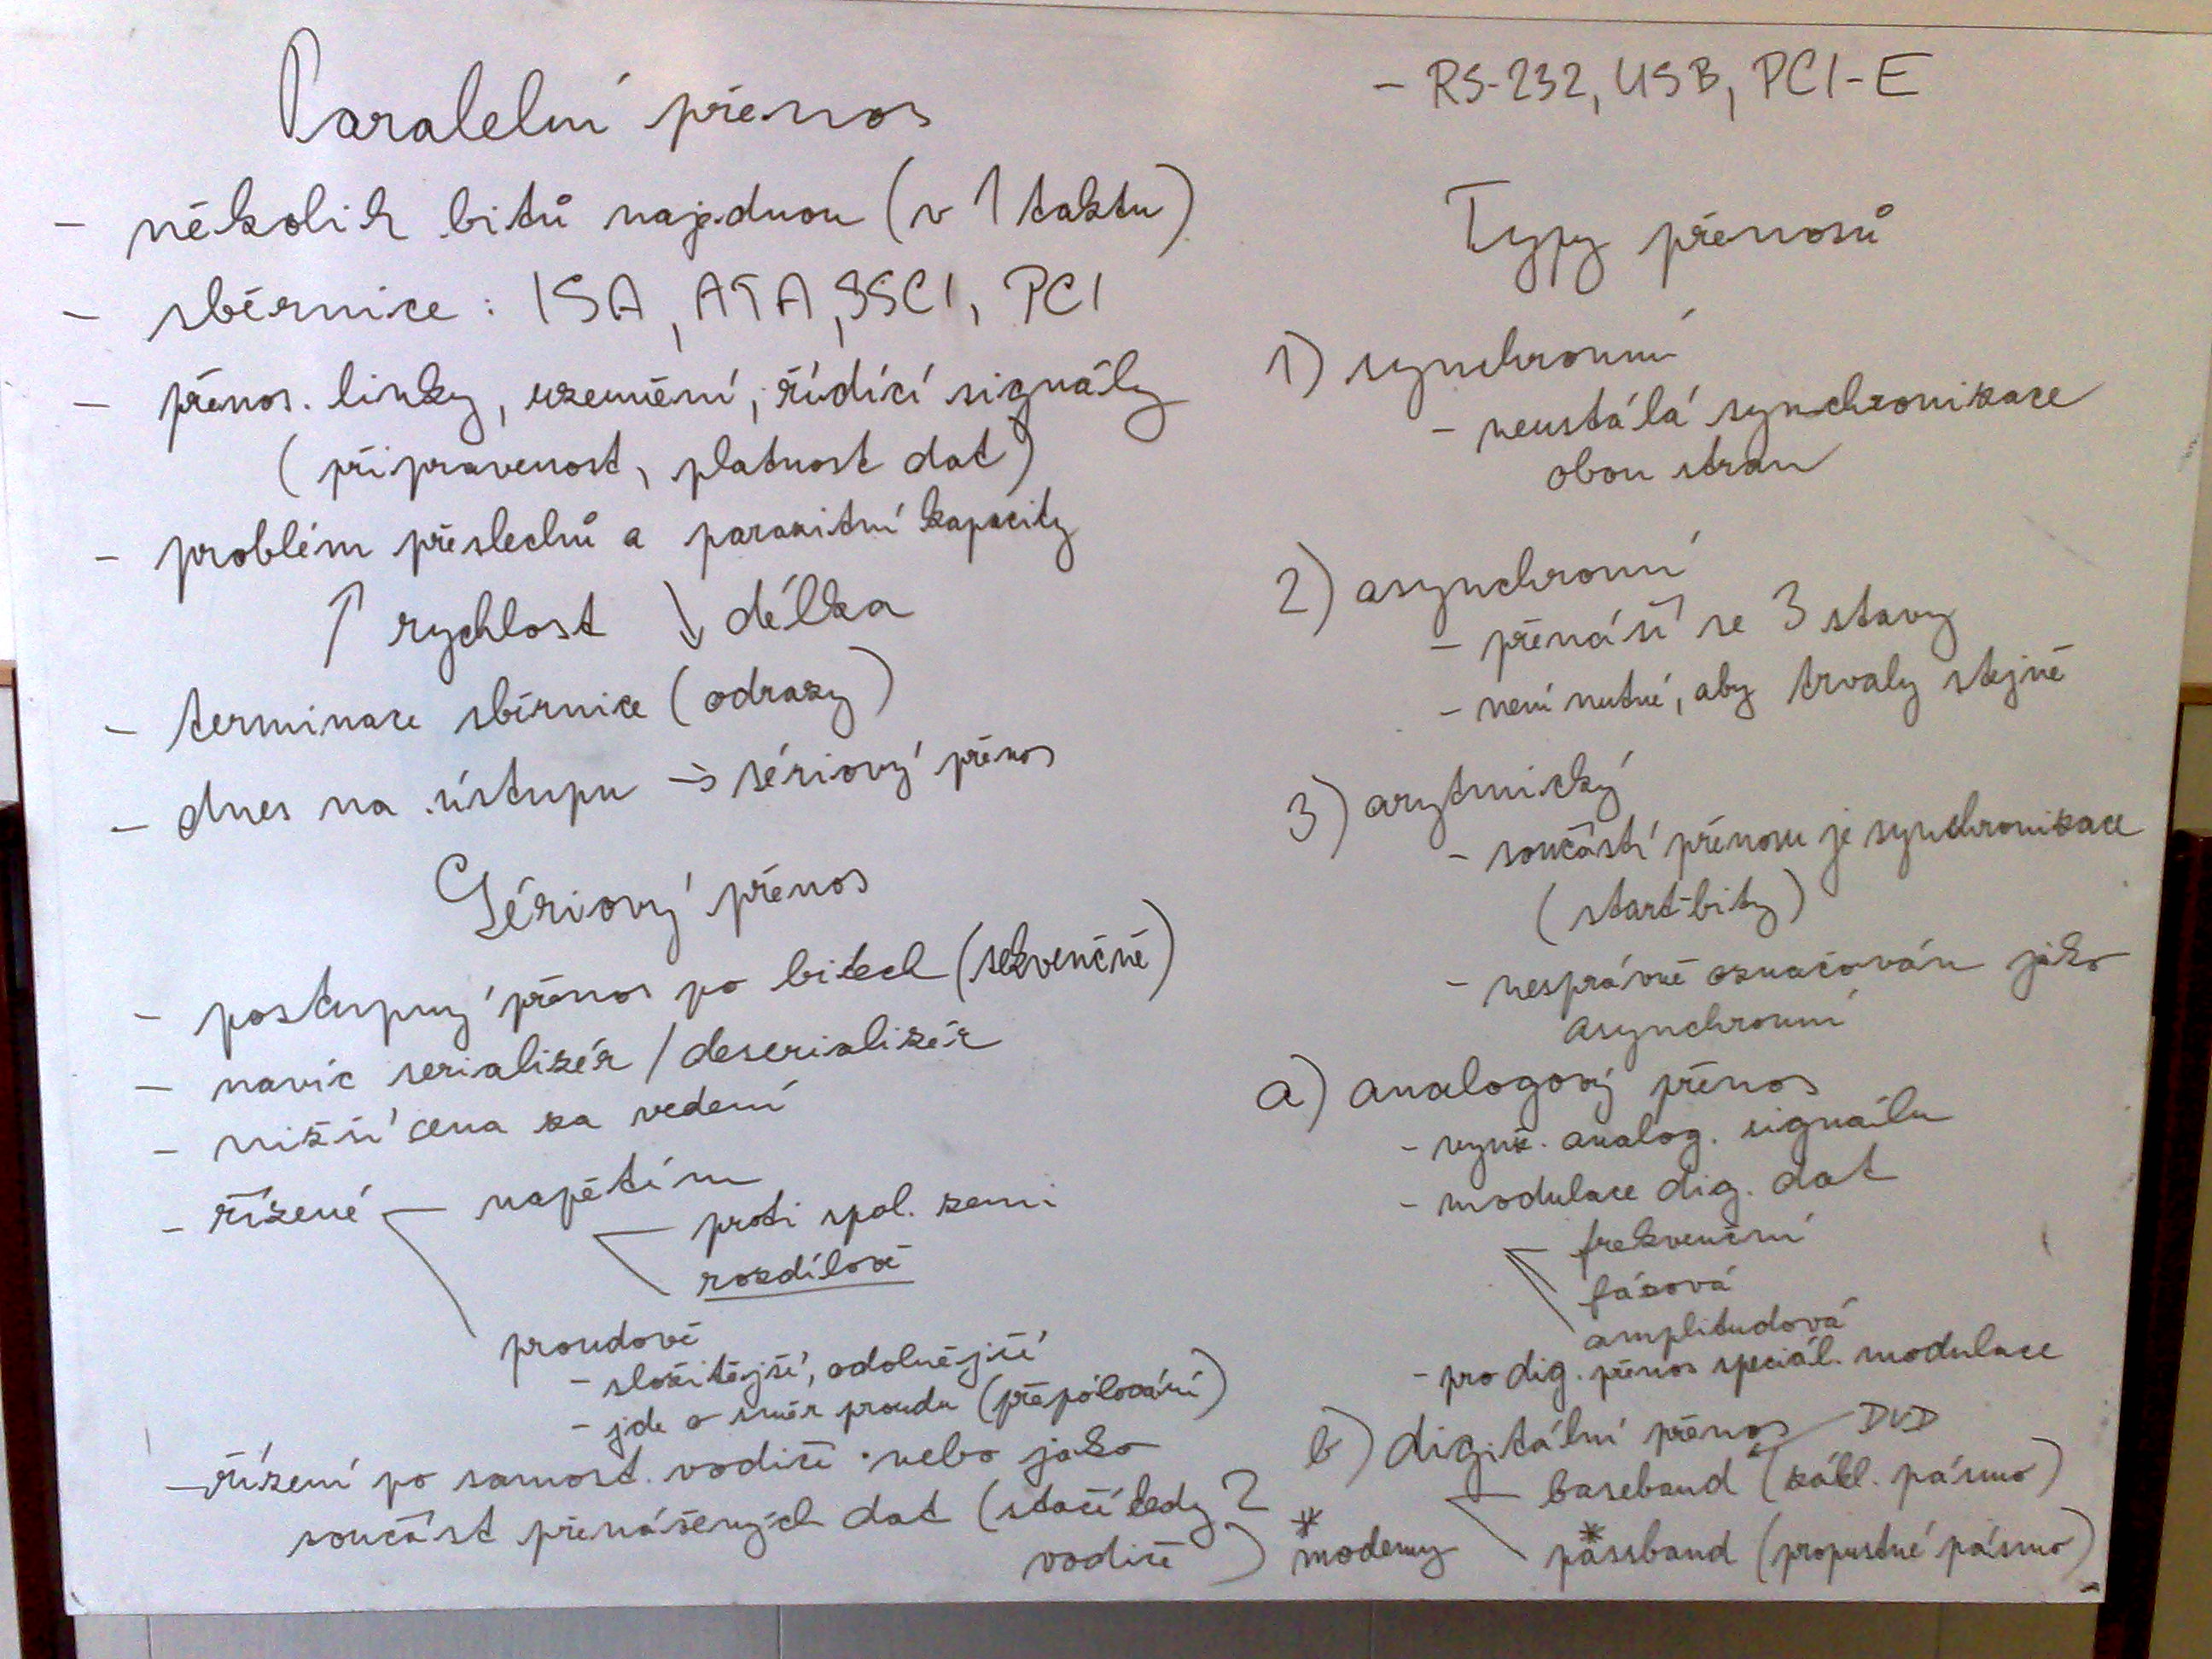 Paralelní přenos
- několik bitů najednou (v 1 taktu)
- sběrnice: ISA, ATA, SSCI, PCI
- přenos. linky, uzemnění, řídící signály
(připravenost, platnost dat)
- problém přeslechů a parazitní kapacity
↑ rychlost ↓ délka
- terminace sběrnice (odrazy)
- dnes na ústupu → sériový přenos
Sériový přenos
- postupný přenos po bitech (sekvenčně)
- navíc serializér / deserializér
- nižší cena za vedení
- řízené napětím
proti spol. zemi
rozdílově
proudově
- složitější, odolnější
- jde o směr proudu (přepólování)
- řízení po samost. vodiči nebo jako
součást přenášených dat (stačí tedy 2
vodiče)
- RS-232, USB, PCI-E
Typy přenosů
1) synchronní
- neustálá synchronizace
obou stran
2) asynchronní
- přenáší se 3 stavy
- není nutné, aby trvaly stejně
3) arytmický
- součástí přenosu je synchronizace
(start-bity)
- nesprávně označován jako
asynchronní
a) analogový přenos
- využ. analog. signálu
- modulace dig. dat
frekvenční
fázová
amplitudová
- pro dig. přenos speciál. modulace
b) digitální přenos DVD
baseband (zákl. pásmo)
* passband (propustné pásmo)
* modemy